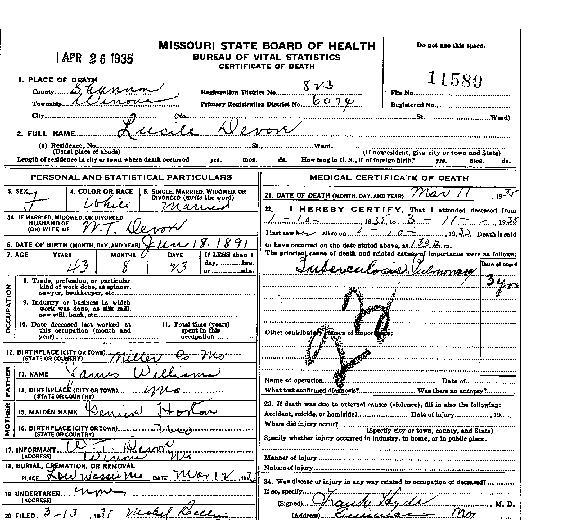 APR 26 1935
MISSOURI STATE BOARD OF HEALTH
BUREAU OF VITAL STATISTICS
CERTIFICATE OF DEATH
Do not use this space.
11580
1. PLACE OF DEATH
County Shannon
Registration District No. 823
File No.
Township Winona
Primary Registration District No. 6074
Registered No.
City No. St. Ward)
2. FULL NAME Lucile Devon
(a) Residence, No. St. Ward.
(Usual place of abode) (If nonresident, give city or town and State)
Length of residence in city or town where death occurred yrs. mos. ds. How long in U. S., if of foreign birth? yrs. mos. ds.
PERSONAL AND STATISTICAL PARTICULARS
3. SEX F
4. COLOR OR RACE White
5. SINGLE, MARRIED, WIDOWED OR DIVORCED (write the word) Married
5A. IF MARRIED, WIDOWED, OR DIVORCED
HUSBAND OF
(OR) WIFE OF W.T. Devon
6. DATE OF BIRTH (MONTH, DAY, AND YEAR) June 18, 1891
7. AGE YEARS MONTHS DAYS If LESS than 1
43 8 23
day, hrs.
or min.
OCCUPATION
8. Trade, profession, or particular kind of work done, as spinner, sawyer, bookkeeper, etc.
9. Industry or business in which work was done, as silk mill, saw mill, bank, etc.
10. Date deceased last worked at this occupation (month and year)
11. Total time (years) spent in this occupation
12. BIRTHPLACE (CITY OR TOWN) Miller Co Mo
(STATE OR COUNTRY)
FATHER
13. NAME James Williams
14. BIRTHPLACE (CITY OR TOWN) Mo
(STATE OR COUNTRY)
MOTHER
15. MAIDEN NAME
16. BIRTHPLACE (CITY OR TOWN)
(STATE OR COUNTRY)
17. INFORMANT W. T. Devon
(ADDRESS) Winona Mo
18. BURIAL, CREMATION, OR REMOVAL
PLACE DATE Mar 12 1935
19. UNDERTAKER
(ADDRESS)
20. FILED 3-13 1935
MEDICAL CERTIFICATE OF DEATH
21. DATE OF DEATH (MONTH, DAY, AND YEAR) Mar 11 1935
22. I HEREBY CERTIFY, That I attended deceased from
1-10- 1935, to 3-11- 1935
I last saw alive on 1-10- 1935 Death is said
to have occurred on the date stated above, at m.
The principal cause of death and related causes of importance were as follows:
Date of onset
Tuberculosis Pulmonary 3 yrs
23
Other contributory causes of importance:
Name of operation Date of
What test confirmed diagnosis? Was there an autopsy?
23. If death was due to external causes (violence), fill in also the following:
Accident, suicide, or homicide? Date of injury , 19
Where did injury occur?
(Specify city or town, county, and State)
Specify whether injury occurred in industry, in home, or in public place.
Manner of injury
Nature of injury
24. Was disease or injury in any way related to occupation of deceased?
If so, specify
(Signed) Frank Hyde M. D.
(Address) Mo